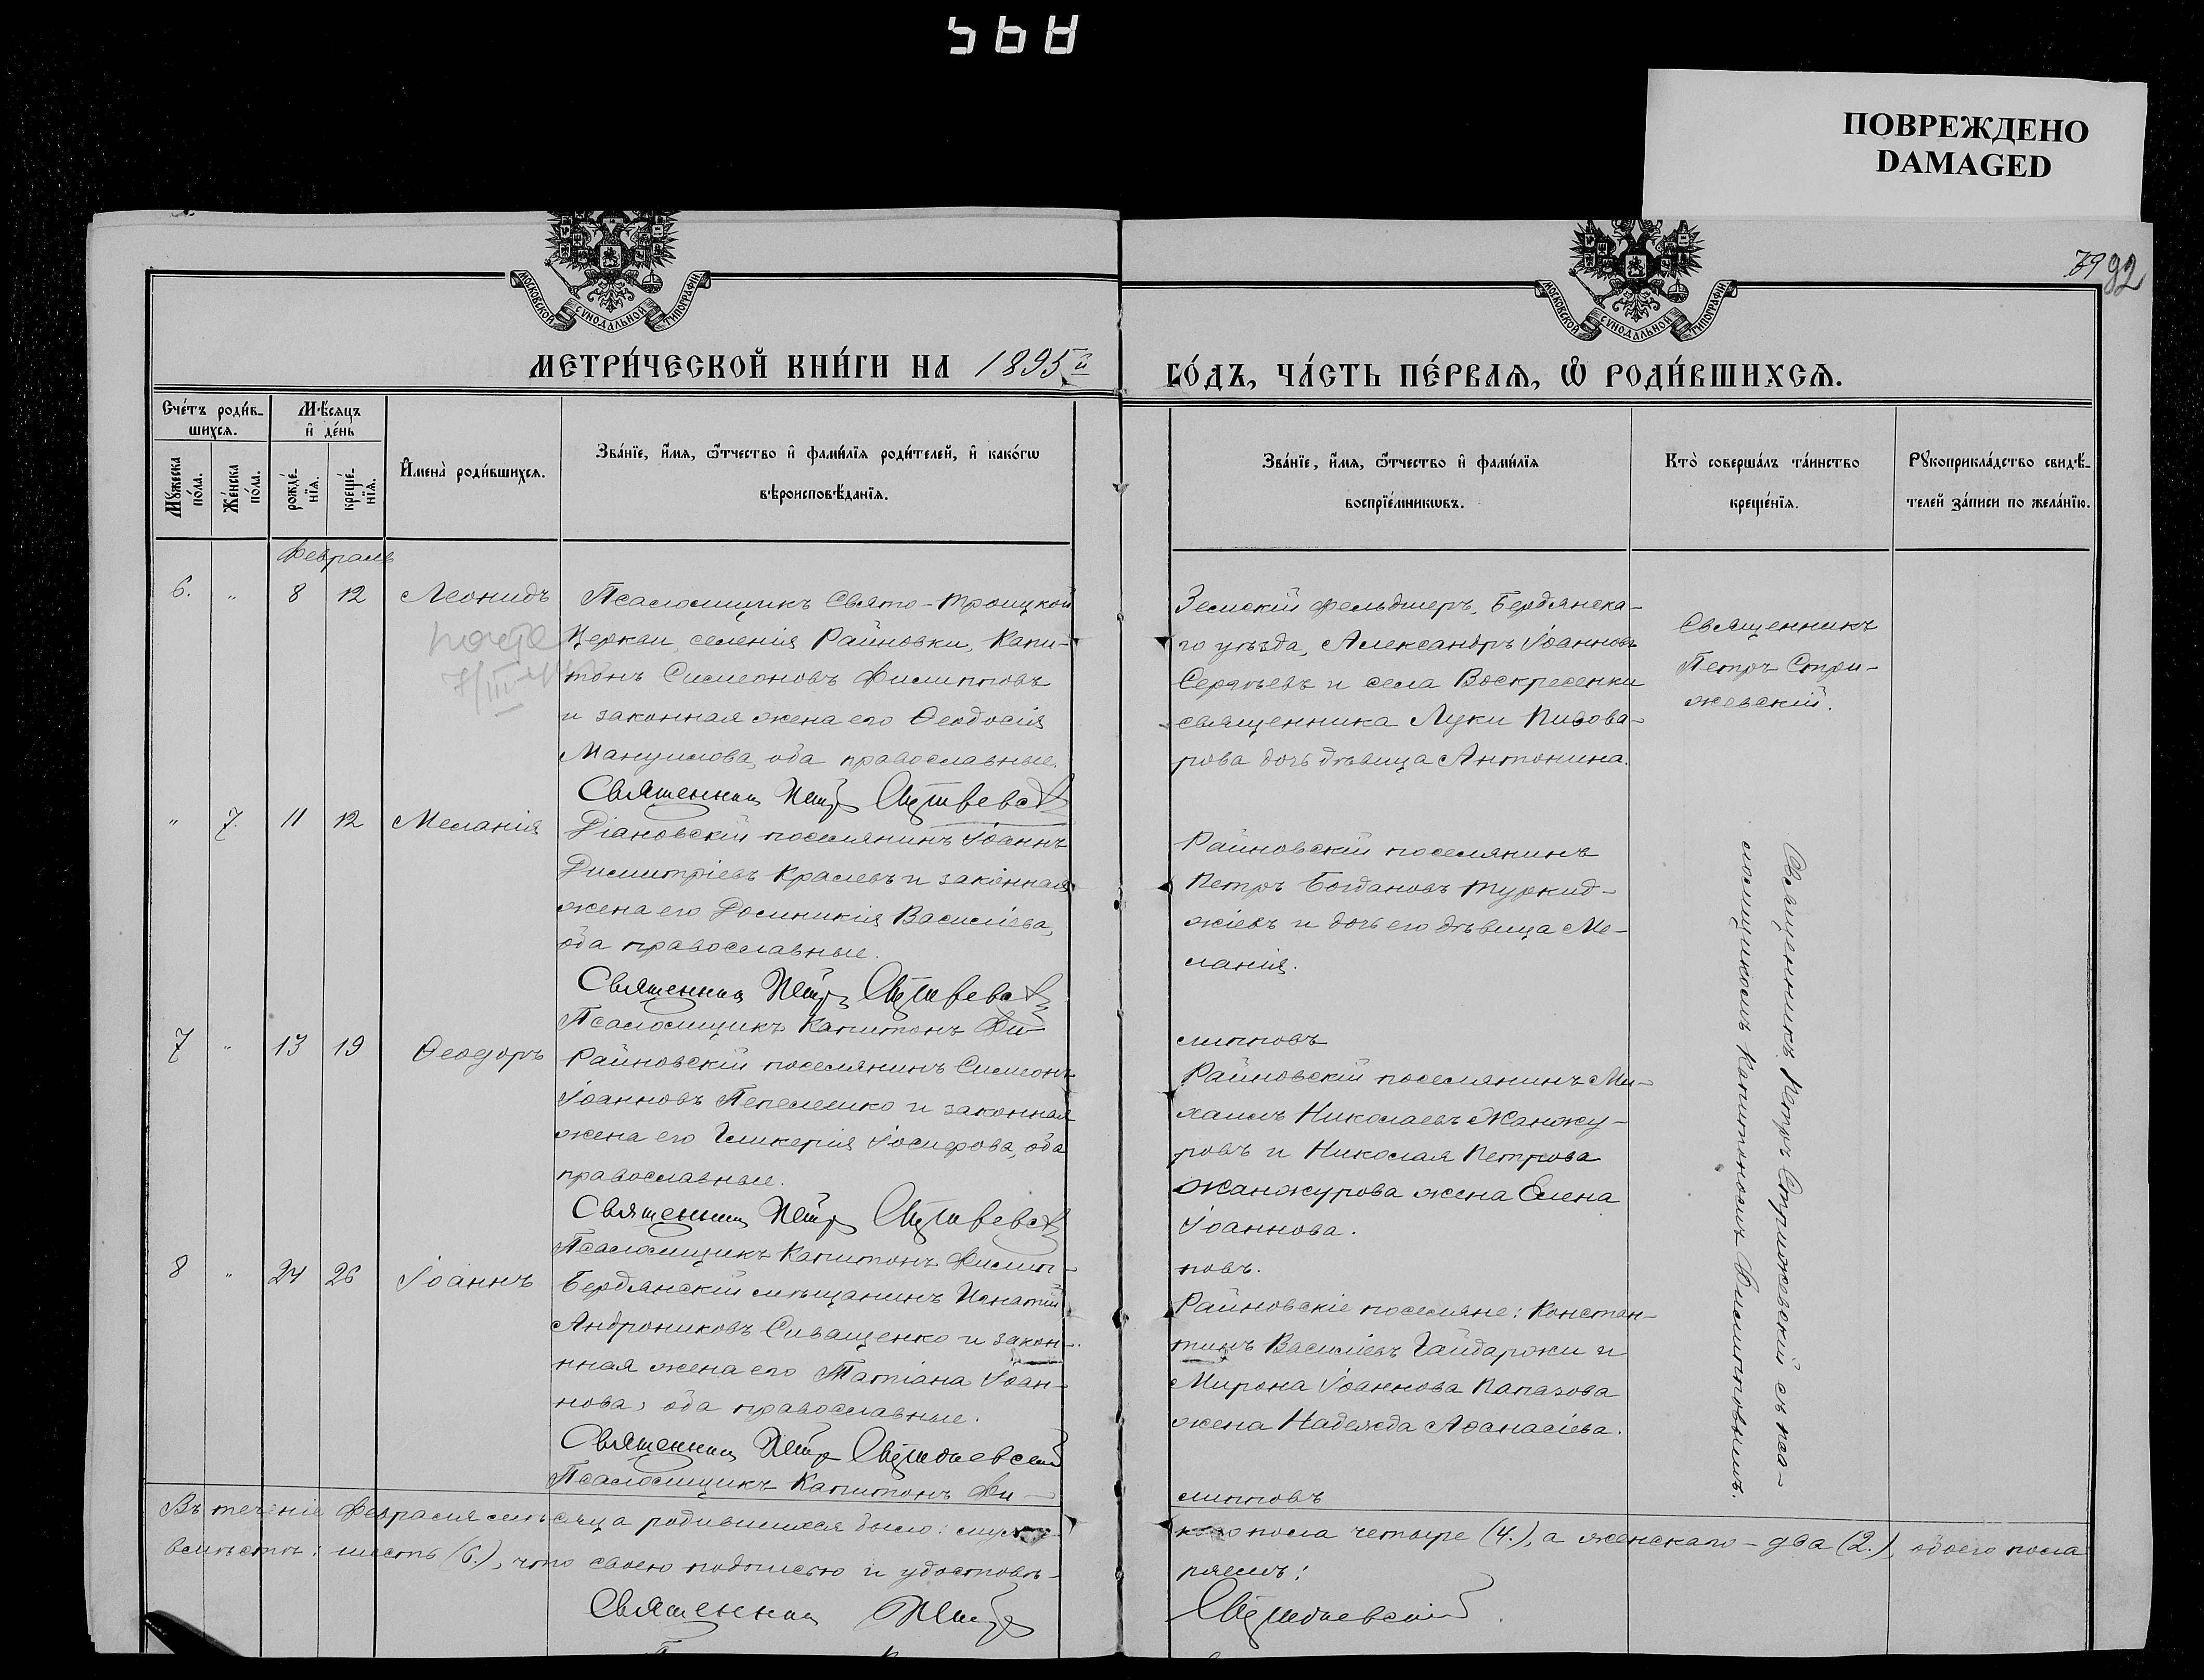 568
ПОВРЕЖДЕНО
DAMAGED
МОСКОВСКОЙ СѴНОДАЛЬНОЙ ТИПОГРАФІИ
МОСКОВСКОЙ СѴНОДАЛЬНОЙ ТИПОГРАФІИ
79 92
МЕТРИ́ЧЕСКОЙ КНИ́ГИ НА 1895й
ГО́ДЪ, ЧА́СТЬ ПЕ́РВАЯ, Ѽ РОДИ́ВШИХСЯ.
Сче́тъ роди́в-
шихся.
Мꙋ́жеска по́ла.
Же́нска по́ла.
Мѣ́сяцъ и҆ де́нь
рожде́-нїя.
креще́-нїя.
И҆мена̀ роди́вшихся.
Зва́нїе, и҆́мя, ѻ҆́тчество и҆ фами́лїя роди́телей, и҆ како́гѡ
вѣроисповѣ́данїя.
Зва́нїе, и҆́мя, ѻ҆́тчество и҆ фами́лїя
воспрїе́мникѡвъ.
Кто̀ соверша́лъ та́инство
креще́нїя.
Рꙋкоприкла́дство свидѣ́-
телей за́писи по жела́нїю.
Февраль
6. " 8 12 Леонидъ
Псаломщикъ Свято-Троицкой
Церкви, селенія Райновки, Капи-
тонъ Симеоновъ Филипповъ
и законная жена его Ѳеодосія
Мануилова, оба православные.
Священникъ Петръ Стрижевскій
Земскій фельдшеръ, Бердянска-
го уѣзда, Александръ Іоанновъ
Сергѣевъ и села Воскресенки
священника Луки Пивова-
рова дочь дѣвица Антонина.
Священникъ
Петръ Стри-
жевскій.
" 7. 11 12 Меланія
Діановскій поселянинъ Іоаннъ
Димитріевъ Кралевъ и законная
жена его Домникія Василіева,
оба православные.
Священникъ Петръ Стрижевскій
Псаломщикъ Капитонъ Фи-
Райновскій поселянинъ
Петръ Богдановъ Туркид-
жіевъ и дочь его дѣвица Ме-
ланія.
липповъ
7 " 13 19 Ѳеодоръ
Райновскій поселянинъ Симеонъ
Іоанновъ Пепелешко и законная
жена его Гликерія Іосифова, оба
православные.
Священникъ Петръ Стрижевскій
Псаломщикъ Капитонъ Филип-
Райновскій поселянинъ Ми-
хаилъ Николаевъ Жанжу-
ровъ и Николая Петрова
Жанжурова жена Елена
Іоаннова.
повъ.
8 " 24 26 Іоаннъ
Бердянскій мѣщанинъ Игнатій
Андрониковъ Сиващенко и закон-
нная жена его Татіана Іоан-
нова, оба православные.
Священникъ Петръ Стрижевскій
Псаломщикъ Капитонъ Фи-
Райновскіе поселяне: Констан-
тинъ Василіевъ Гайдаржи и
Мирона Іоаннова Папазова
жена Надежда Аѳанасіева.
липповъ
Священникъ Петръ Стрижевскій съ пса-
ломщикомъ Капитономъ Филипповымъ.
Въ теченіе Февраля мѣсяца родившихся было: муж-
каго пола четыре (4.), а женскаго - два (2.), обоего пола
вмѣстѣ: шесть (6.), что своею подписью и удостовѣ-
ряемъ:
Священникъ Петръ
Стрижевскій